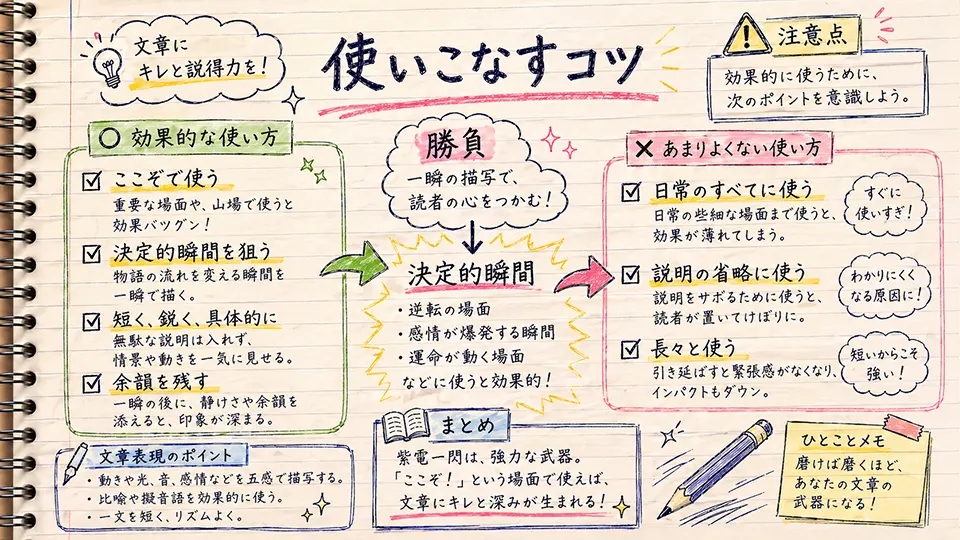 文章に
キレと説得力を!
使いこなすコツ
注意点
効果的に使うために、
次のポイントを意識しよう。
○ 効果的な使い方
ここぞで使う
重要な場面や、山場で使うと
効果バツグン!
決定的瞬間を狙う
物語の流れを変える瞬間を
一瞬で描く。
短く、鋭く、具体的に
無駄な説明は入れず、
情景や動きを一気に見せる。
余韻を残す
一瞬の後に、静けさや余韻を
添えると、印象が深まる。
勝負
一瞬の描写で、
読者の心をつかむ!
決定的瞬間
・逆転の場面
・感情が爆発する瞬間
・運命が動く場面
などに使うと効果的!
× あまりよくない使い方
日常のすべてに使う
日常の些細な場面まで使うと、
効果が薄れてしまう。
すぐに
使いすぎ!
説明の省略に使う
説明をサボるために使うと、
読者が置いてけぼりに。
わかりにくく
なる原因に!
長々と使う
引き延ばすと緊張感がなくなり、
インパクトもダウン。
短いからこそ
強い!
文章表現のポイント
・動きや光、音、感情などを五感で描写する。
・比喩や擬音語を効果的に使う。
・一文を短く、リズムよく。
まとめ
紫電一閃は、強力な武器。
「ここぞ!」という場面で使えば、
文章にキレと深みが生まれる!
ひとことメモ
磨けば磨くほど、
あなたの文章の
武器になる!